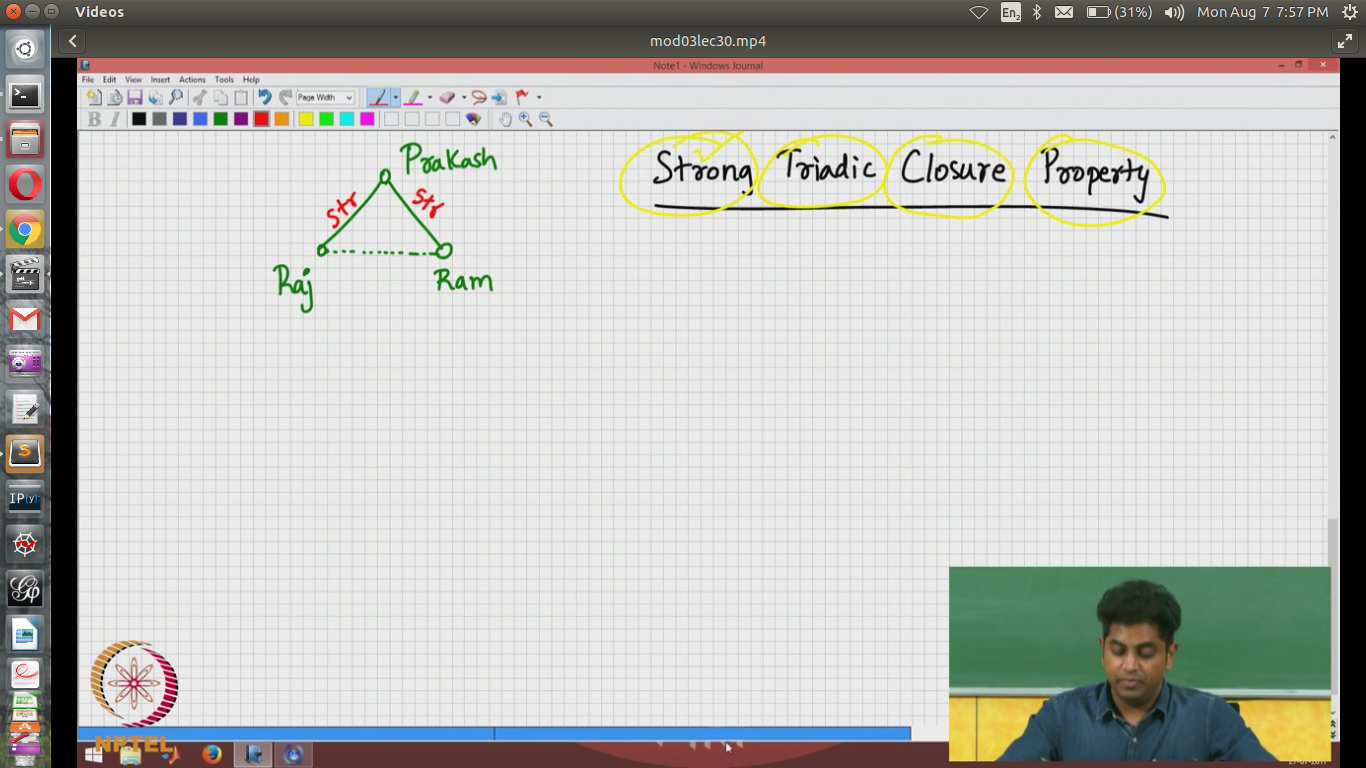 Videos
En2
(31%)
Mon Aug 7 7:57 PM
mod03lec30.mp4
Note1 - Windows Journal
File Edit View Insert Actions Tools Help
Page Width
B I
Prakash
str str
Raj Ram
Strong Triadic Closure Property
IP[y]:
NPTEL